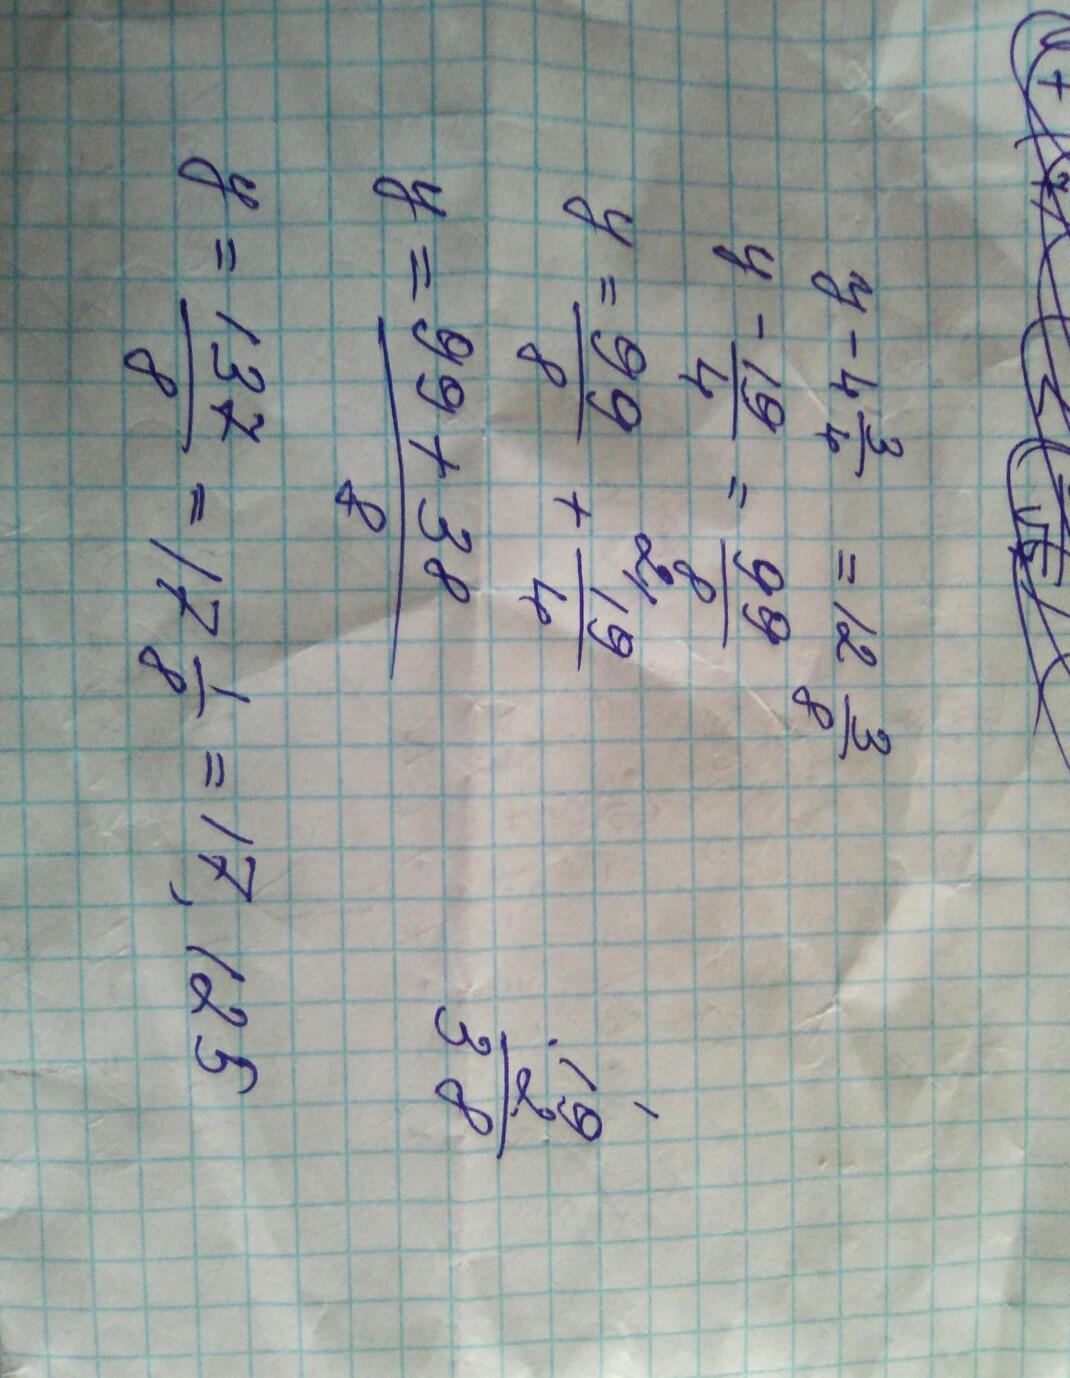 y - 4 3/4 = 12 3/8
y - 19/4 = 99/8
y = 99/8 + 2\ 19/4
y = (99 + 38)/8
y = 137/8 = 17 1/8 = 17,125
1
· 19
2
38